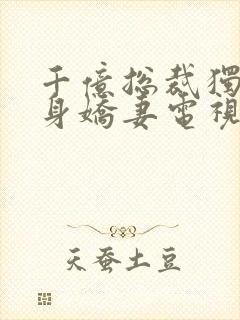 千億總裁獨
身嬌妻電視
天蚕土豆